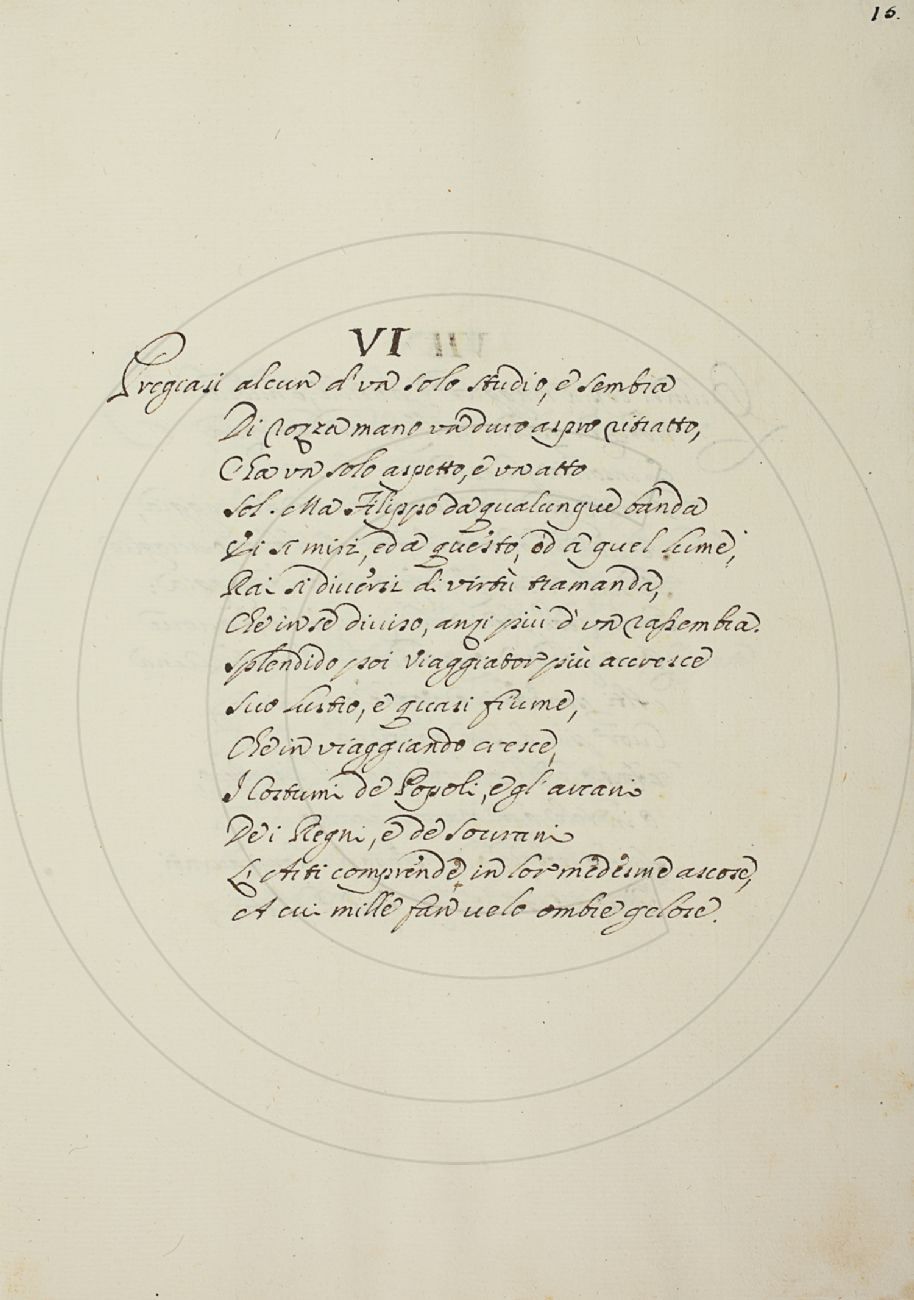 16.
VI
Pregiasi alcun d'un solo studio, e sembra
Di rozza mano un duro aspro ritratto,
C'ha un solo aspetto, e un atto
Sol. Ma Filippo da qualunque banda
Ei si miri, ed a questo, od a quel lume,
Rai sì diversi di virtù tramanda,
Che in sé diviso, anzi più d'un rassembra.
Splendido poi Viaggiator più accresce
Suo lustro, e quasi fiume,
Che in viaggiando cresce,
I Costumi de Popoli, e gl'arcani
De i Regni, e de Sourani
L'Arti comprende in lor medesme ascose,
A cui mille fan velo ombre gelose.